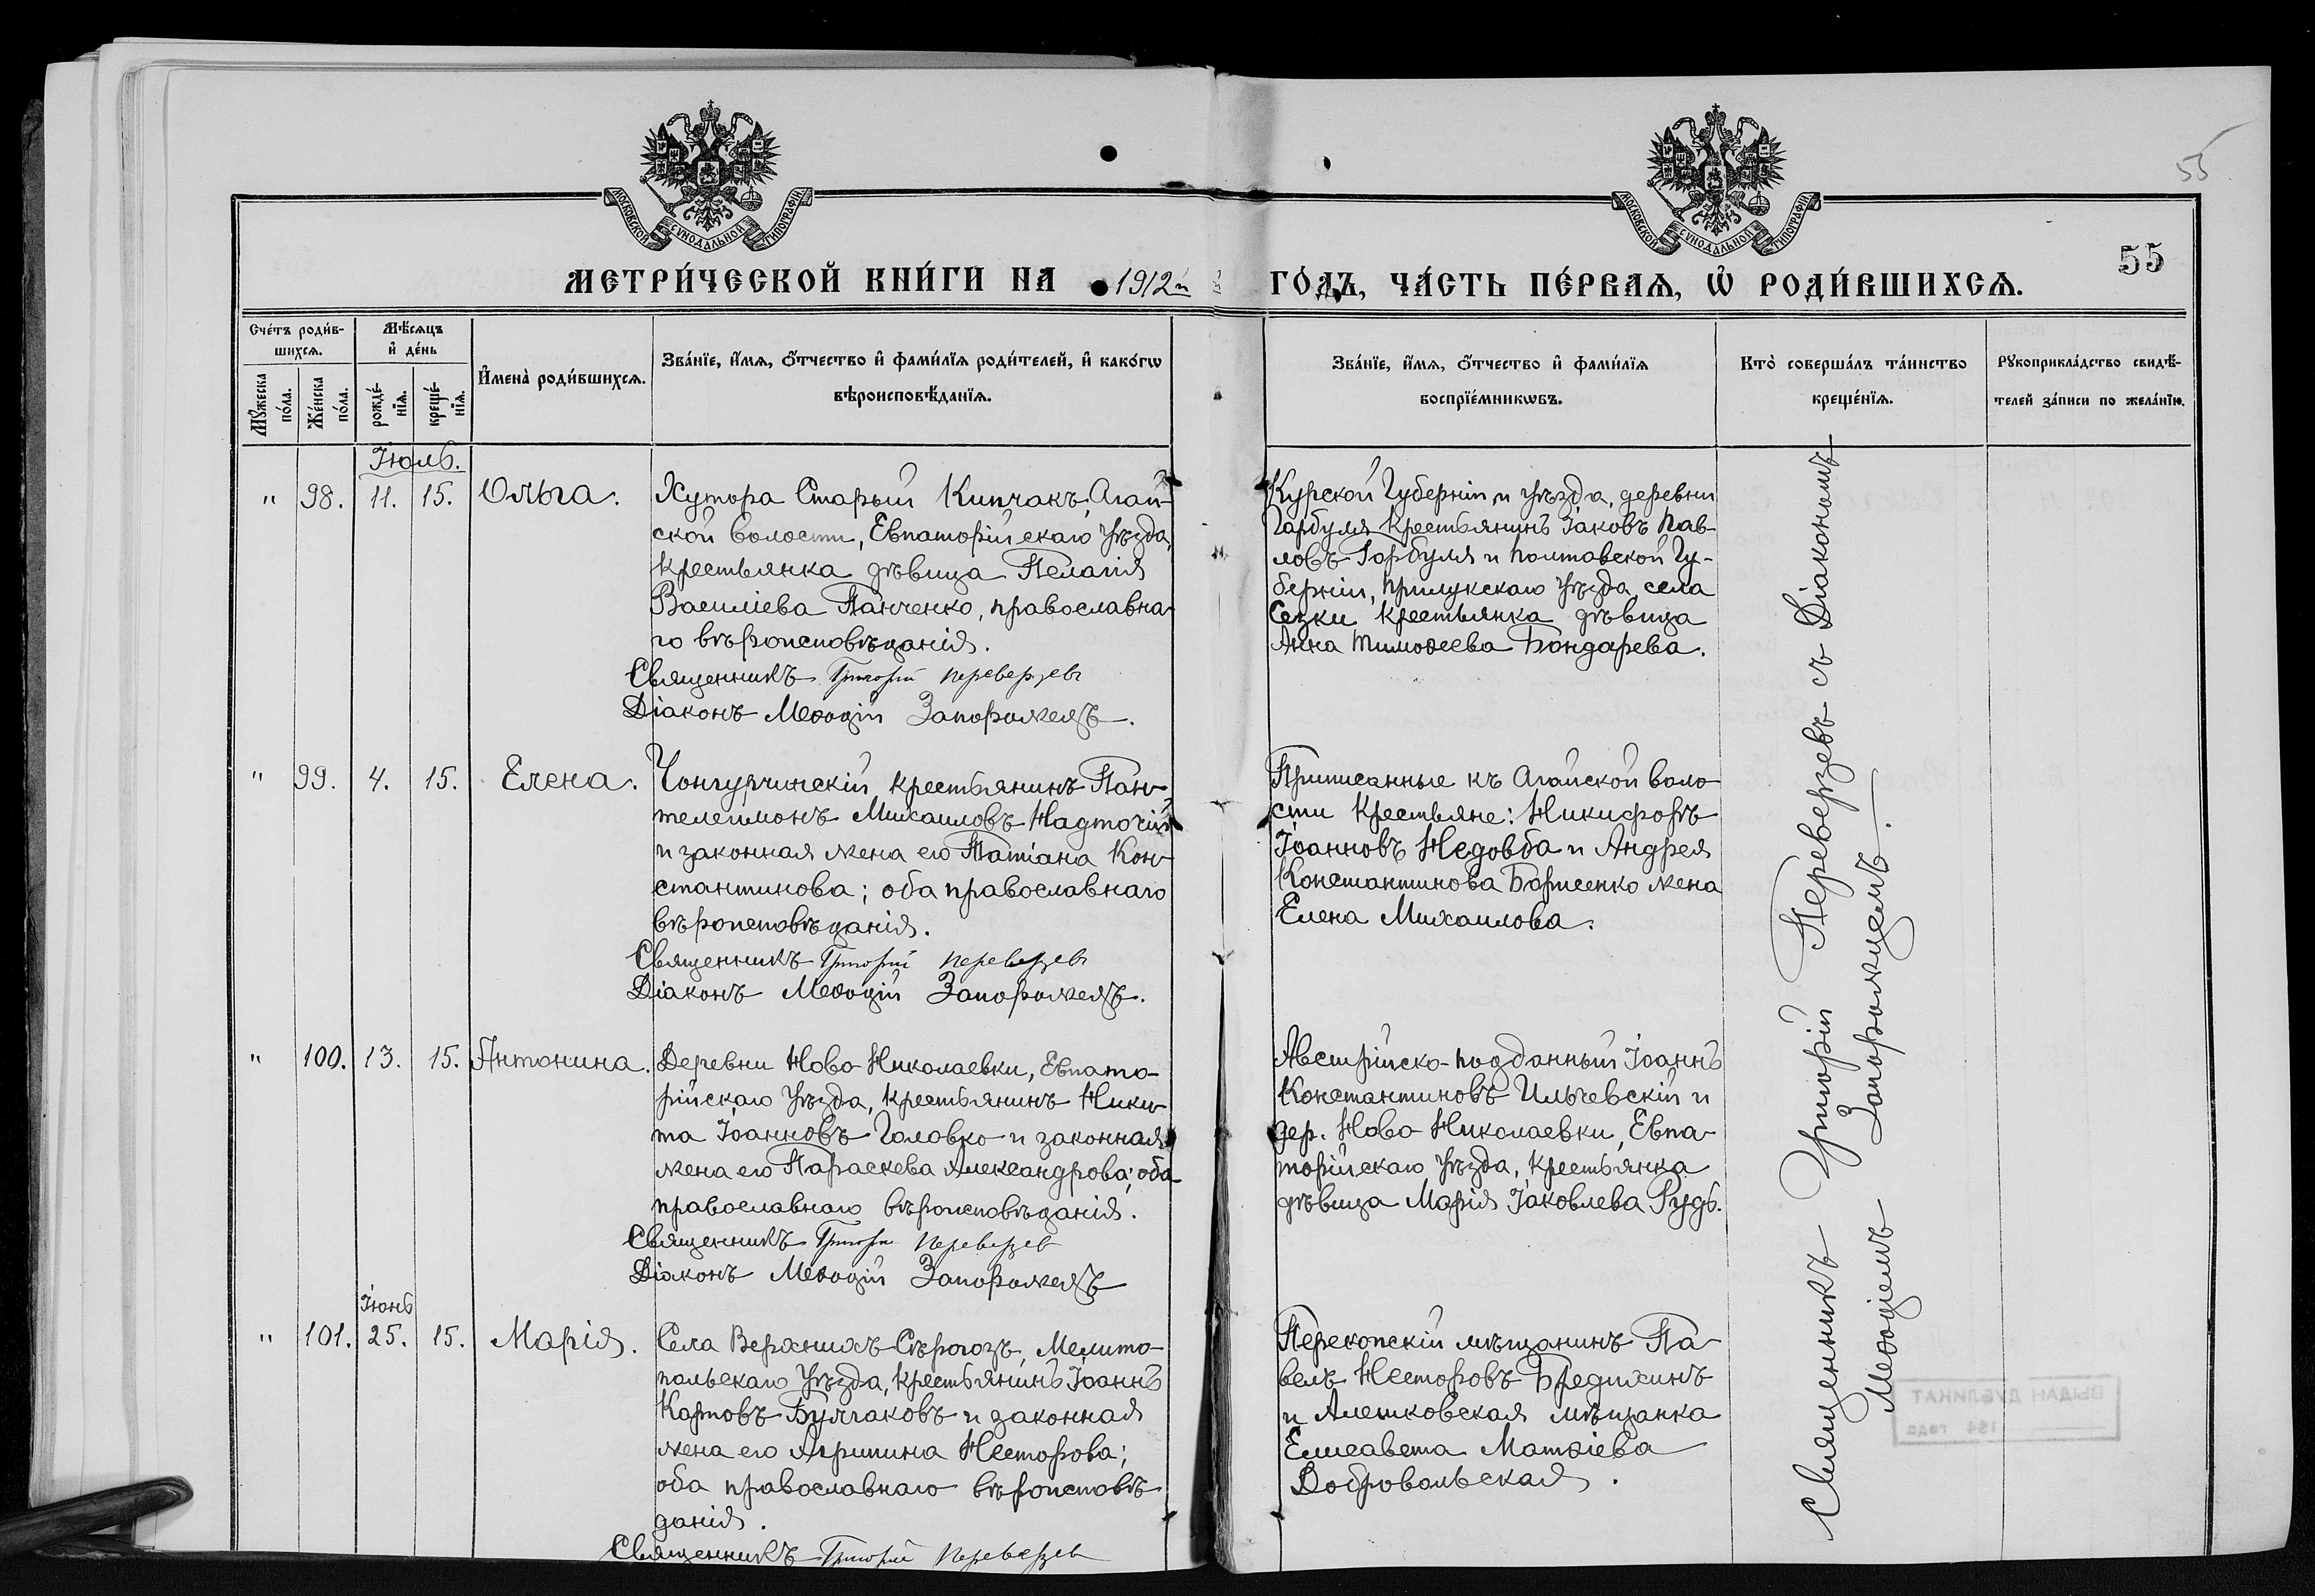 55
55
МОСКОВСКОЙ СУНОДАЛЬНОЙ ТИПОГРАФІИ.
МОСКОВСКОЙ СУНОДАЛЬНОЙ ТИПОГРАФІИ.
МЕТРИ́ЧЕСКОЙ КНИ́ГИ НА 1912й ГО́ДЪ, ЧА́СТЬ ПЕ́РВАѦ, Ѡ҆ РОДИ́ВШИХСѦ.
Сче́тъ роди́в-
шихсѧ.
Мꙋ́жеска
по́ла.
Же́нска
по́ла.
Мѣ́сяцъ
и҆ де́нь
рожде́-
нїѧ.
креще́-
нїѧ.
И҆мена̀ роди́вшихсѧ.
Зва́нїе, и҆́мѧ, ѻ҆́тчество и҆ фами́лїѧ роди́телей, и҆ како́гѡ
вѣроисповѣ́данїѧ.
Зва́нїе, и҆́мѧ, ѻ҆́тчество и҆ фами́лїѧ
воспрїе́мникѡвъ.
Кто̀ соверша́лъ та́инство
креще́нїѧ.
Рꙋкоприкла́дство свидѣ́-
телей за́писи по жела́нїю.
Іюль.
" 98. 11. 15. Ольга.
Хутора Старый Кипчакъ, Агай-
ской волости, Евпаторійскаго уѣзда,
крестьянка дѣвица Пелагія
Василіева Панченко, православна-
го вѣроисповѣданія.
Священникъ Григорій Переверзевъ
Діаконъ Меѳодій Запорожецъ.
Курской Губерніи и уѣзда, деревни
Гарбуля крестьянинъ Іаковъ Пав-
ловъ Гарбуля и Полтавской Гу-
берніи, Прилукскаго уѣзда, села
Сезки крестьянка дѣвица
Анна Тимоѳеева Бондарева.
" 99. 4. 15. Елена.
Чонгурчинскій крестьянинъ Пан-
телеимонъ Михаиловъ Надточій
и законная жена его Татіана Кон-
стантинова; оба православнаго
вѣроисповѣданія.
Священникъ Григорій Переверзевъ
Діаконъ Меѳодій Запорожецъ.
Приписанные къ Агайской воло-
сти крестьяне: Никифоръ
Іоанновъ Недовба и Андрея
Константинова Борисенко жена
Елена Михаилова.
" 100. 13. 15. Антонина.
Деревни Ново-Николаевки, Евпато-
рійскаго уѣзда, крестьянинъ Ники-
та Іоанновъ Головко и законная
жена его Параскева Александрова; оба
православнаго вѣроисповѣданія.
Священникъ Григорій Переверзев
Діаконъ Меѳодій Запорожецъ
Австрійско-подданный Іоаннъ
Константиновъ Ильчевскій и
дер. Ново-Николаевки, Евпа-
торійскаго уѣзда, крестьянка
дѣвица Марія Іаковлева Рудь.
Іюнь
" 101. 25. 15. Марія.
Села Верхнихъ Сѣрогозъ, Мелито-
польскаго уѣзда, крестьянинъ Іоаннъ
Карповъ Булгаковъ и законная
жена его Агрипина Несторова;
оба православнаго вѣроисповѣ-
данія.
Священникъ Григорій Переверзев
Перекопскій мѣщанинъ Па-
велъ Несторовъ Бредихинъ
и Алешковская мѣщанка
Елисавета Матѳіева
Добровольская.
Священникъ Григорій Переверзевъ съ Діакономъ
Меѳодіемъ Запорожцемъ.
ВЫДАН ДУБЛИКАТ
194 года